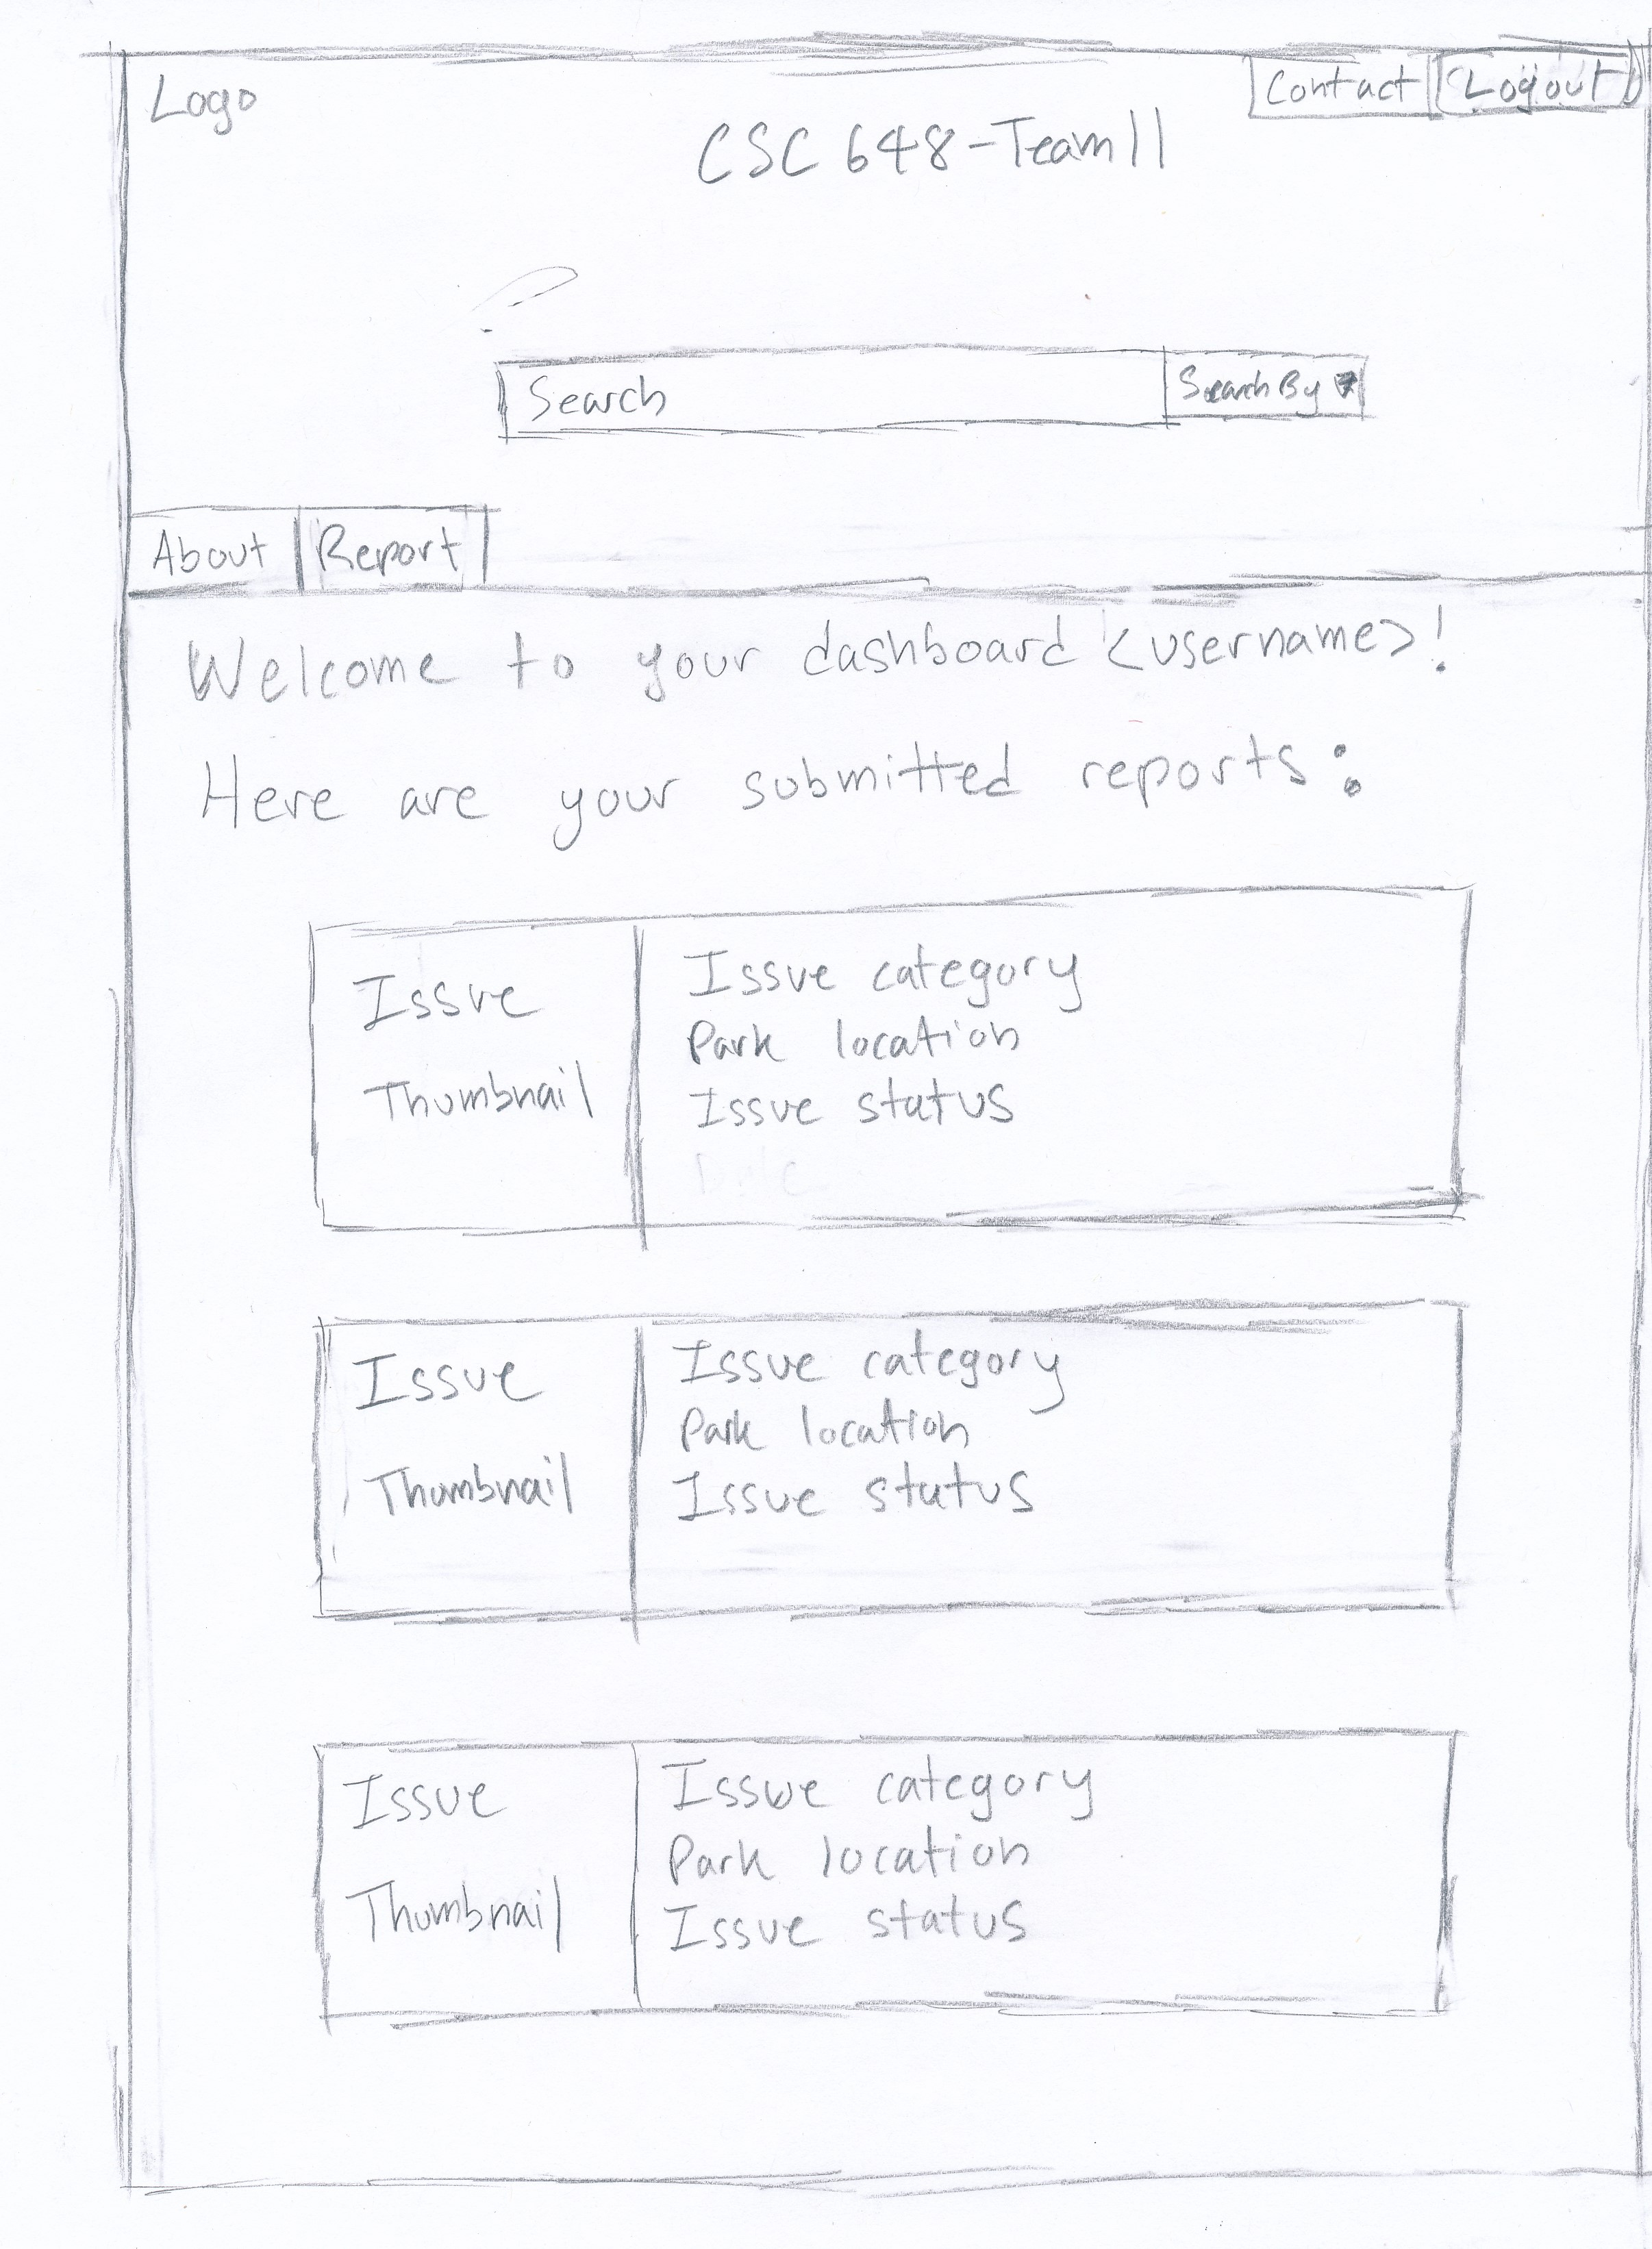 Logo
Contact
Logout
CSC 648-Team 11
Search
Search By
About
Report
Welcome to your dashboard <username>!
Here are your submitted reports:
Issue
Thumbnail
Issue category
Park location
Issue status
Issue
Thumbnail
Issue category
Park location
Issue status
Issue
Thumbnail
Issue category
Park location
Issue status